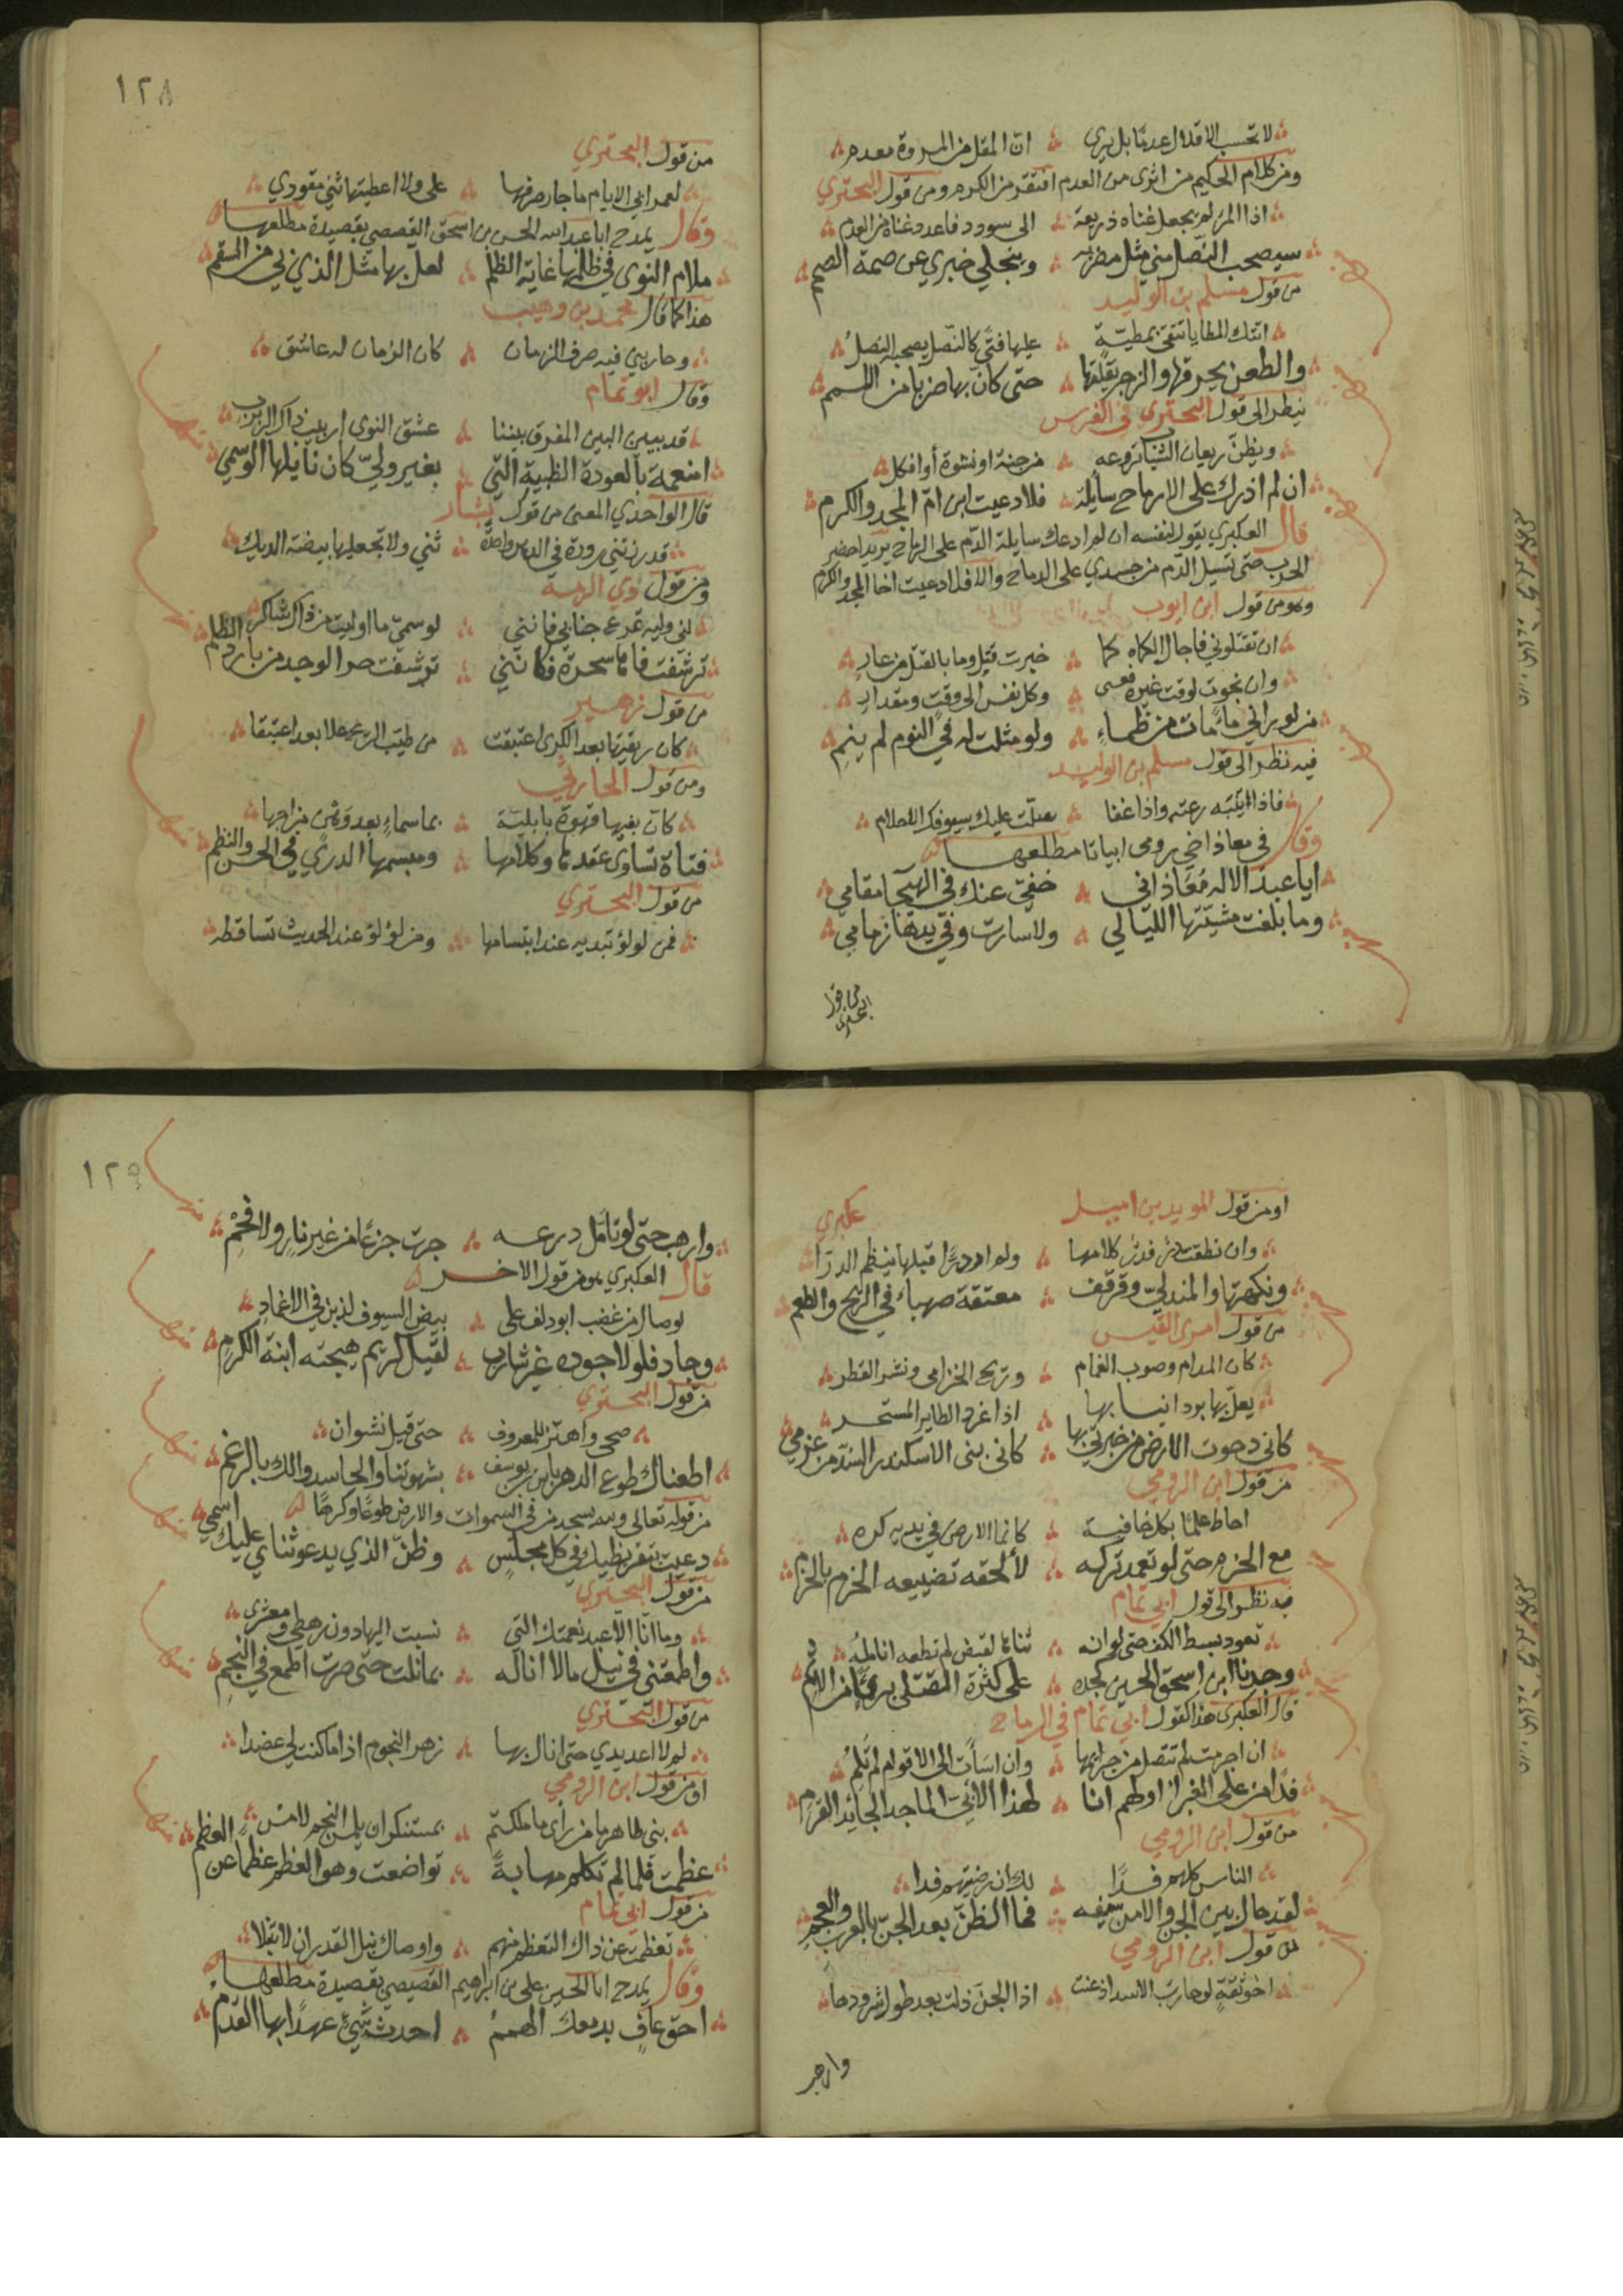 لا تحسب الاقلال عدمًا بل يرى ان المقل من المروة معدم
ومن كلام الحكيم من اثرى من العدم افتقر من الكرم ومن قول البحتري
اذا المرء لم يجعل غناه ذريعة الى سودد فاعدد غناه من العدم
سيصحب النصل مني مثل مضربه وينجلي خبري عن صمة الصمم
من قول مسلم بن الوليد
اتتك المطايا تهتدي بمطية عليها فتًى كالنصل يصحبه النصل
والطعن يحرقها والزجر يقلقها حتى كان بها ضربا من اللمم
ينظر الى قول البحتري في الفرس
ويظن ريعان الشباب تروعه من جنة او نشوة أو افكل
ان لم اذرك على الارماح سايلة فلا دعيت ابن ام المجد والكرم
قال العكبري يقول لنفسه ان لم ادعك سايلة الدم على الرماح يريد احضر
الحرب حتى تسيل الدم من جسدي على الرماح والا فلا دعيت اخا المجد والكرم
وهو من قول ابن ايوب
ان تقتلوني فاجال الكماه كما خبرت قتل وما بالقتل من عار
وان نجوت لوقت غيره فعسى وكل نفس الى وقت ومقدار
من لو راني ماء مات من ظماء ولو مثلت له في النوم لم ينم
فيه نظر الى قول مسلم بن الوليد
فاذا اتنبه رعته واذا غفا سلت عليك سيوفك الاحلام
وقال في معاذ ابياتا مطلعها
ايا عبد الاله معاذ اني خفي عنك في الهيجا مقامي
وما بلغت مشيتها الليالي ولا سارت وفي يدها زمامي
من قول البحتري
١٢٨
من قول البحتري
لعمر ابي الايام ما جار صرفها علي ولا اعطيتها ثني مقودي
وقال يمدح ابا عبد الله الحسين بن اسحق القصصي بقصيدة مطلعها
ملام النوى في ظلمها غاية الظلم لعل بها مثل الذي بي من السقم
هذا كما قال محمد بن وهيب
وحاربني فيه صرف الزمان كان الزمان له عاشق
وقال ابو تمام
قد بيبين البين المفرق بيننا عشق النوى لربيب ذاك الربرب
امنعمة بالعودة الظبية التي بغير ولي كان نايلها الوسمي
قال الواحدي المعنى من قول بشار
قد زرتني زورة في الدهر واحدة ثني ولا تجعليها بيضة الديك
ومن قول ذي الرمه
لني وليه تمرع جنابي فانني لوسمي ما اوليت من ذاك شاكر
ترشفت فاها سحرة فكانني ترشفت حر الوجد من بارد الظلم
من قول زهير
كان ريقتها بعد الكرى اغتبقت من طيب الريح لما بعد اعتقا
ومن قول الحارثي
كان بفيها قهوة بابلية بماسماء بعد وهن مزاجها
فتاة تساوى عقدها وكلامها ومبسمها الدري في الحسن والنظم
من قول البحتري
فمن لولو تبديه عند ابتسامها ومن لؤلؤ عند الحديث تساقطه
او من قول المويد بن اميل عكبري
وان نطقت در فدر كلامها ولم ار درًا قبلها ينظم الدرا
ونكهتها والمندلي وقرقف معتقة صهباء في الريح والطعم
من قول امرى القيس
كان المدام وصوب الغمام وريح الخزامى ونشر القطر
يعل بها برد انيابها اذا غرد الطاير المستحر
كاني دحوت الارض من خبرتي بها كاني بنى الاسكندر السد من عزمي
من قول ابن الرومي
احاط علمًا بكل خافية كانما الارض في يديه كره
مع الحزم حتى لو تعمد تركه لألحقه تضييعه الحزم بالحزم
فيه نظر الى قول ابي تمام
تعود بسط الكف حتى لو انه ثناها لقبض لم تطعه انامله
وجدنا ابن اسحق الحسين كجده على كثرة القتلى بريًا من الاثم
قال العكبري هذا كقول ابي تمام في الرماح
ان اجرمت لم تتنصل من جرايمها وان اسأت الى الاقوام لم تلم
فدا من على الغبرا اولهم انا لهذا الابي الماجد الجائد القرم
من قول ابن الرومي
الناس كلهم فدًا لك ان رضيتهم فدا
لقد حال بين الجن والامن سيفه فما الظن بعد الجن بالعرب والعجم
من قول ابن الرومي
اخو ثقة لو حارب الاسد اذعنت اذا الجن ذلت بعد طول شرودها
وارهب
١٢٩
وارهب حتى لو تأمل درعه جرت جزعًا من غير نار ولا فحم
قال العكبري هو من قول الاخر
لو صال من غضب ابو دلف على بيض السيوف لذبن في الاغماد
وجاد فلولا جوده غير شارب لقيل كريم هيجته ابنة الكرم
من قول البحتري
صحى واهتز للمعروف حتى قيل نشوان
اطعناك طوع الدهر يا ابن ابن يوسف بشهوتنا والحاسدو لك بالرغم
من قوله تعالى ولله يسجد من في السموات والارض طوعًا وكرهًا
دعيت بتقريظيك في كل مجلس وظن الذي يدعو ثناي عليك اسمي
من قول البحتري
وما انا الا عبد نعمتك التي نسبت اليها دون رهطي ومعشري
واطمعتني في نيل مالا اناله بما نلت حتى صرت اطمع في النجم
من قول البحتري
لم لا امد يدي حتى انال بها زهر النجوم اذا ما كنت لي عضدا
او من قول ابن الرومي
بني طاهر ما من رأى ما ملكتم بمستنكر ان يلمس النجم لامس
عظمت فلما لم تكلم مهابةً تواضعت وهو العظم عظما عن العظم
من قول ابي تمام
تعظمت عن ذاك التعظم منهم واوصاك نبل القدر ان لا تنبلا
وقال يمدح ابا الحسين علي بن ابراهيم القصيصي بقصيدة مطلعها
احق عاف بدمعك الهمم احدث شيء عهدًا بها القدم